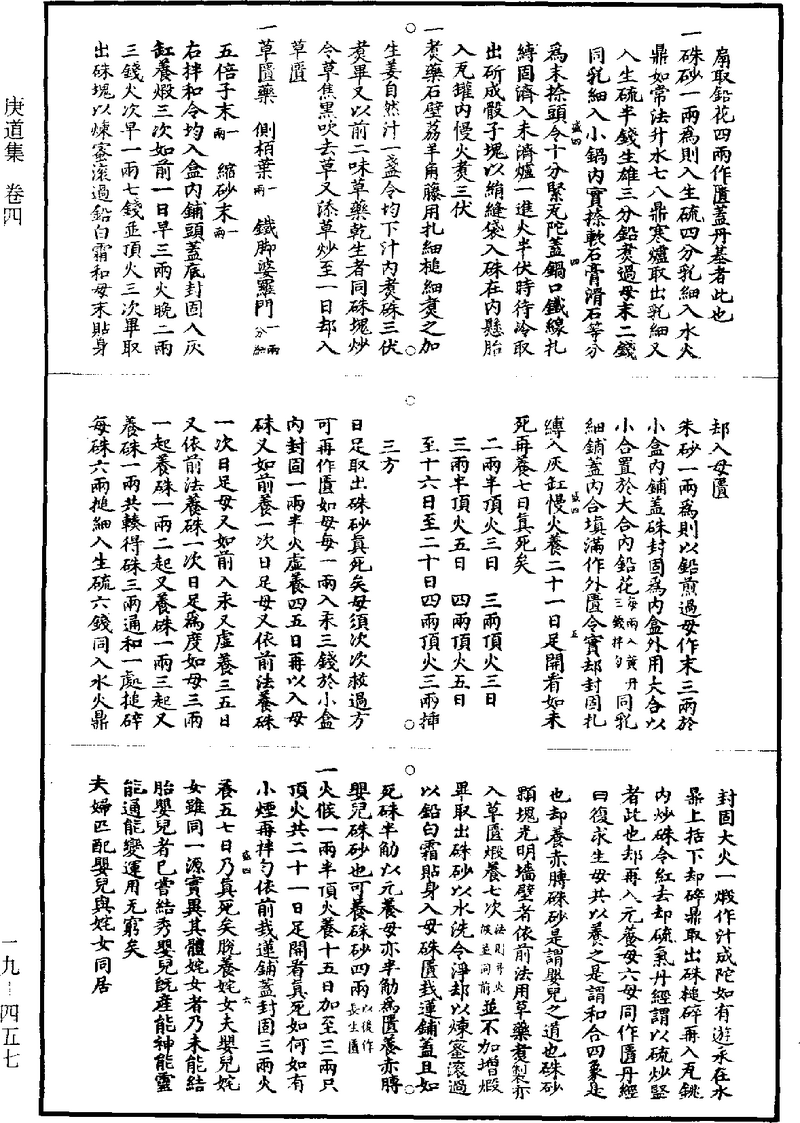 庚道集 卷四
扇取鉛花四兩作匱蓋丹基者此也
一硃砂一兩為則入生硫四分乳細入水火
鼎如常法升水七八鼎寒爐取出乳細又
入生硫半錢生雄三分鉛煑過母末二錢
同乳細入小鍋內實捺軟石膏滑石等分
為末捺頭令十分緊瓦陀蓋鍋口鐵線扎
縛固濟入未濟爐一進火半伏時待冷取
出斫成骰子塊以絹縫袋入硃在內懸胎
入瓦罐內慢火煑三伏
一煑藥石壁荔羊角藤用扎細槌細煑之加
生姜自然汁一盞令均下汁內煑硃三伏
煑畢又以前二味草藥乾生者同硃塊炒
令草焦黑吹去草又添草炒至一日却入
草匱
一草匱藥 側栢葉一兩 鐵脚婆羅門一兩分
五倍子末一兩 縮砂末一兩
右拌和令均入盒內鋪頭蓋底封固入灰
缸養煅三次如前一日早三兩火晚二兩
三錢火次早一兩七錢並頂火三次畢取
出硃塊以煉蜜滾過鉛白霜和母末貼身
却入母匱
朱砂一兩為則以鉛煎過母作末三兩於
小盒內鋪蓋硃封固為內盒外用大合以
小合置於大合內鉛花每兩入黃丹三錢拌勻同乳
細鋪蓋內合填滿作外匱令實却封固扎
縛入灰缸慢火養二十一日足開看如未
死再養七日真死矣
二兩半頂火三日 三兩頂火三日
三兩半頂火五日 四兩頂火五日
至十六日至二十日四兩頂火三兩挿
三方
日足取出硃砂真死矣母須次次救過方
可再作匱如母每一兩入汞三錢於小盒
內封固一兩半火虛養四五日再以入母
硃又如前養一次日足母又依前法養硃
一次日足母又如前入汞又虛養三五日
又依前法養硃一次日足為度如母三兩
一起養硃一兩二起又養硃一兩三起又
養硃一兩共轃得硃三兩通和一處搥碎
每硃六兩搥細入生硫六錢同入水火鼎
封固大火一煅作汁成陀如有遊汞在水
鼎上括下却碎鼎取出硃槌碎再入瓦銚
內炒硃令紅去却硫氣丹經謂以硫炒堅
者此也却再入元養母六母同作匱丹經
曰復求生母共以養之是謂和合四象是
也却養赤膊硃砂是謂嬰兒之道也硃砂
顆塊光明墻壁者依前法用草藥煑製亦
入草匱煅養七次法則升火候並同前並不加增煅
畢取出硃砂以水洗令淨却以煉蜜滾過
以鉛白霜貼身入母硃匱栽蓮鋪蓋且如
死硃半觔以元養母亦半觔為匱養赤膊
嬰兒硃砂也可養硃砂四兩以後作長生匱
一火候一兩半頂火養十五日加至三兩只
頂火共二十一日足開看真死如何如有
小煙再拌勻依前栽蓮鋪蓋封固三兩火
養五七日乃真死矣脫養姹女夫嬰兒姹
女雖同一源實異其體姹女者乃未能結
胎嬰兒者已嘗結秀嬰兒旣產能神能靈
能通能變運用无窮矣
夫婦匹配嬰兒與姹女同居
一九—四五七